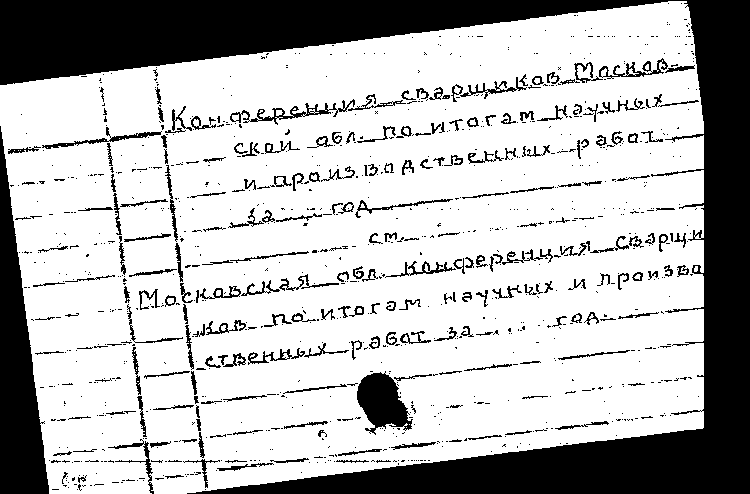 Конференция сварщиков Москов-
ской обл. по итогам научных
и производственных работ
за ... год
см.
Московская обл. конференция сварщи
ков по итогам научных и произво
ственных работ за ... год.